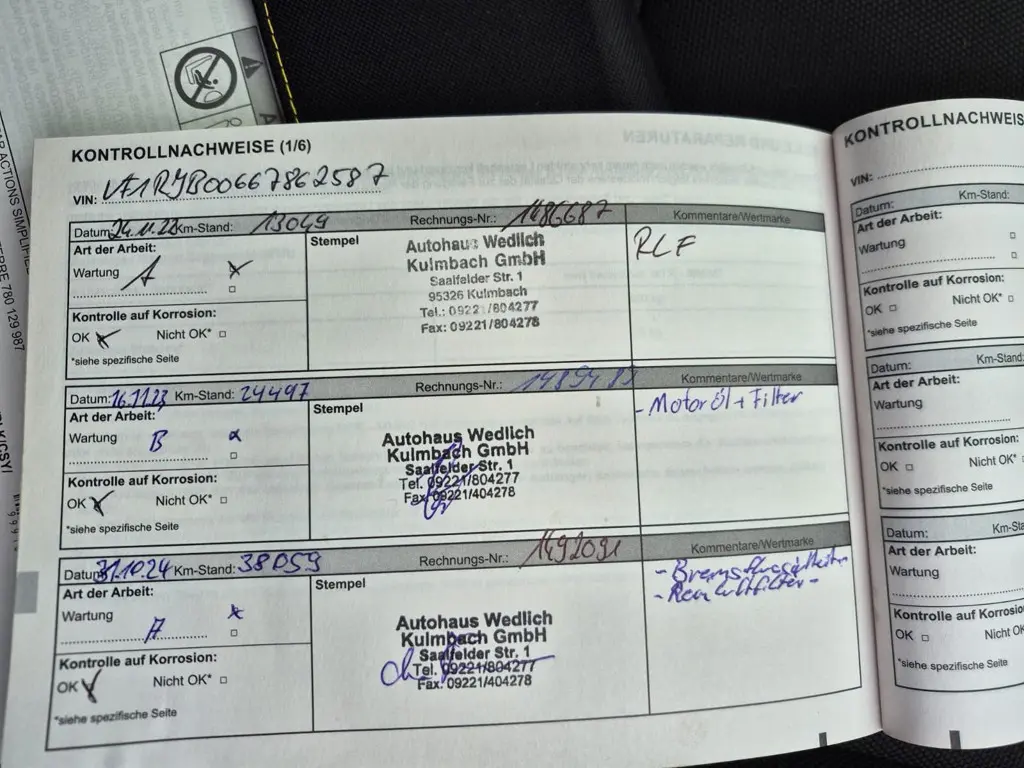 KONTROLLNACHWEISE (1/6)
VIN: VF1RJB00667862587
Datum: 24.11.22 Km-Stand: 13049 Rechnungs-Nr.: 1486687 Kommentare/Wertmarke
Art der Arbeit:
Wartung A
Kontrolle auf Korrosion:
OK Nicht OK*
*siehe spezifische Seite
Stempel
Autohaus Wedlich
Kulmbach GmbH
Saalfelder Str. 1
95326 Kulmbach
Tel.: 09221/804277
Fax: 09221/804278
RLF
Datum: 16.11.23 Km-Stand: 24497 Rechnungs-Nr.: Kommentare/Wertmarke
Art der Arbeit:
Wartung B
Kontrolle auf Korrosion:
OK Nicht OK*
*siehe spezifische Seite
Stempel
Autohaus Wedlich
Kulmbach GmbH
Saalfelder Str. 1
Tel. 09221/804277
Fax 09221/404278
- Motoröl + Filter
Datum: 31.10.24 Km-Stand: 38059 Rechnungs-Nr.: 1492091 Kommentare/Wertmarke
Art der Arbeit:
Wartung A
Kontrolle auf Korrosion:
OK Nicht OK*
*siehe spezifische Seite
Stempel
Autohaus Wedlich
Kulmbach GmbH
Saalfelder Str. 1
Tel. 09221/804277
Fax. 09221/404278
- Bremsflüssigkeit
KONTROLLNACHWEIS
VIN:
Datum: Km-Stand:
Art der Arbeit:
Wartung
Kontrolle auf Korrosion:
OK Nicht OK*
*siehe spezifische Seite
Datum: Km-Stand:
Art der Arbeit:
Wartung
Kontrolle auf Korrosion:
OK Nicht OK*
*siehe spezifische Seite
Datum: Km-Sta
Art der Arbeit:
Wartung
Kontrolle auf Korrosio
OK Nicht OK
*siehe spezifische Seite